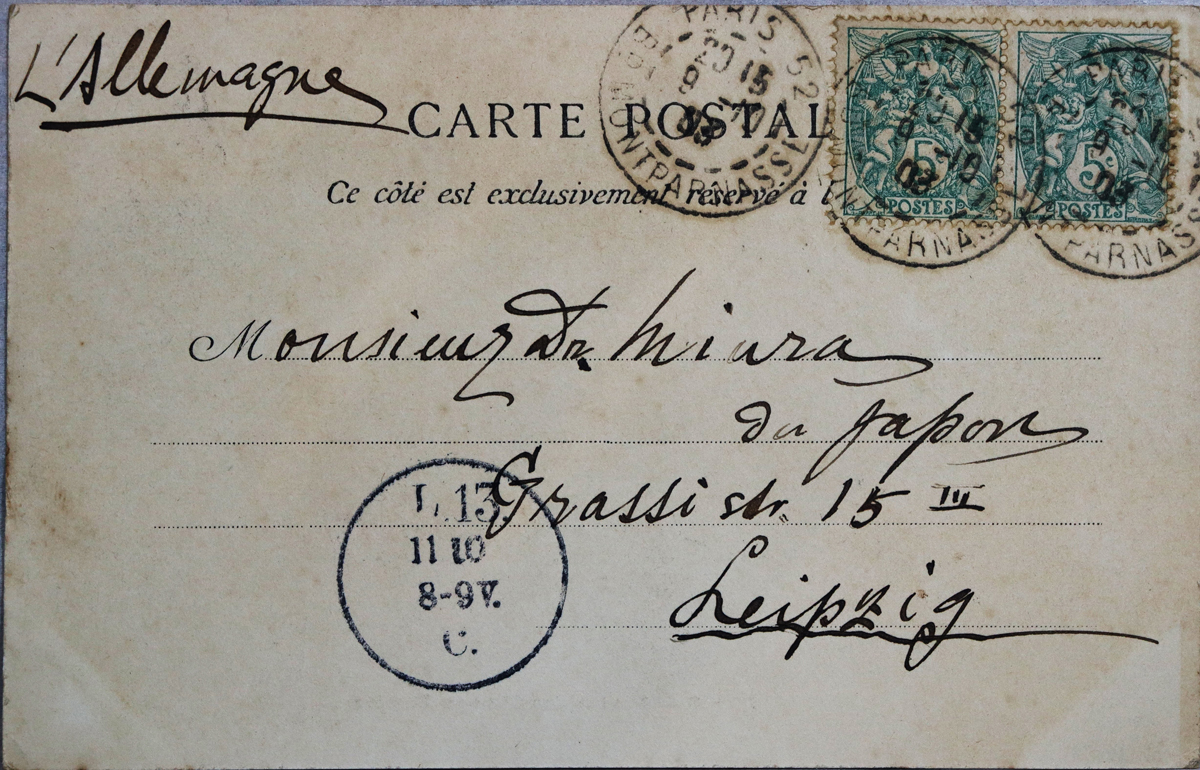 L'Allemagne
CARTE POSTAL
Ce côté est exclusivement réservé à l
PARIS 52
20 15
9 10
03
BD MONTPARNASSE
15
10
03
PARNAS
5c
POSTES
PARIS
9
03
PARNASS
5c
POSTES
Monsieur Dr. Miura
du Japon
Grassi str. 15 III
Leipzig
L. 13.
11 10
8-9V.
C.